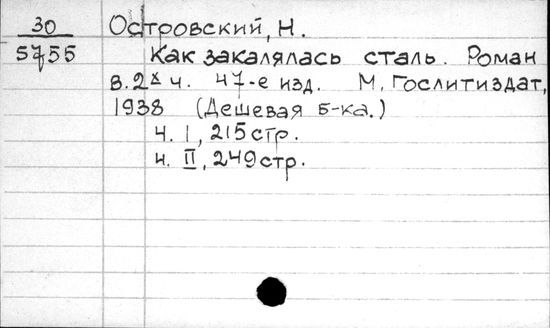 30
5755
Островский, Н.
Как закалялась сталь. Роман
в. 2х ч. 47-е изд. М, Гослитиздат,
1938 (Дешевая б-ка.)
ч. I, 215 стр.
ч. II, 249 стр.